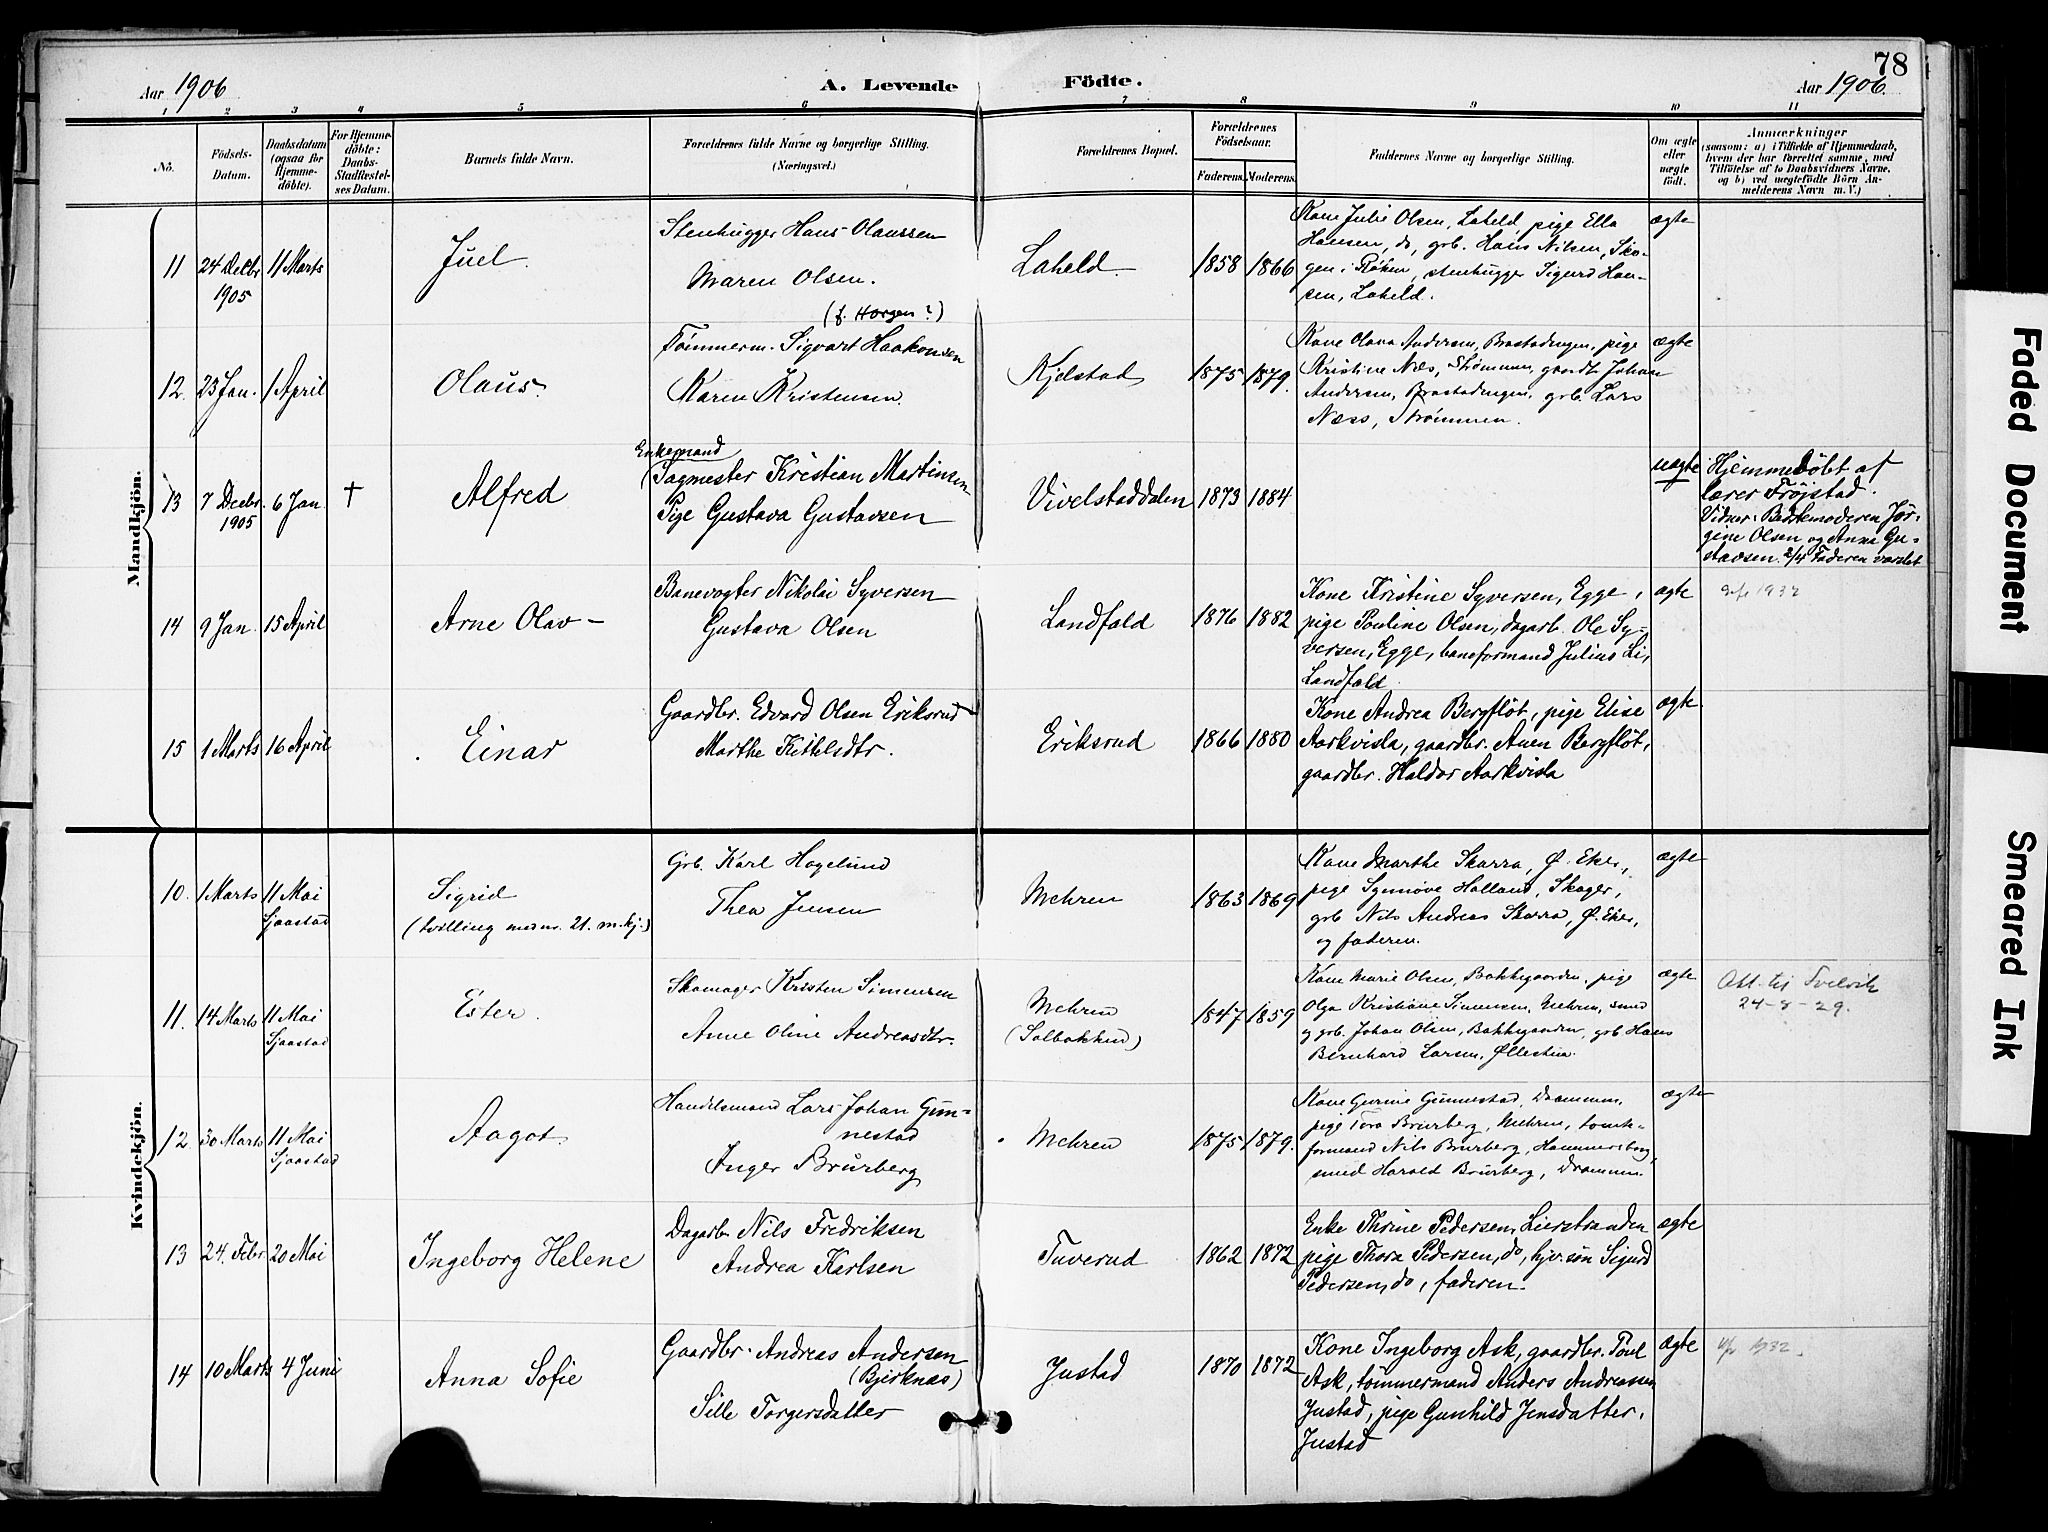 78
Aar 1906
A. Levende Födte.
Aar 1906.
1 2 3 4 5 6 7 8 9 10 11
No.
Födsels-Datum.
Daabsdatum (ogsaa for Hjemme-döbte).
For Hjemme-döbte: Daabs-Stadfæstel-ses Datum.
Barnets fulde Navn.
Forældrenes fulde Navne og borgerlige Stilling.
(Næringsvei.)
Forældrenes Bopæl.
Forældrenes Födselsaar.
Faderens. Moderens.
Faddernes Navne og borgerlige Stilling.
Om ægte eller uægte födt.
Anmærkninger
(saasom: a) i Tilfælde af Hjemmedaab,
hvem der har forrettet samme, med
Tilföielse af to Daabsvidners Navne,
og b) ved uægtefödte Börn An-
melderens Navn m. V.)
Mandkjön.
11 24 Decbr 1905 11 Marts
Juel.
Stenhugger Hans Olaussen
Maren Olsen.
(f. Horgen?)
Laheld
1858 1866
Kone Julie Olsen, Laheld, pige Ella
Hansen, do, grb. Hans Nilsen, Sko-
gen i Röken, stenhugger Sigurd Han-
sen, Laheld.
ægte
12. 23 Jan. 1 April
Olaus.
Tömmerm. Sigvart Haakonsen
Karen Kristensen.
Kjelstad
1875 1879.
Kone Olava Andersen, Brastadengen, pige
Kristine Næs, Strømmen, gaardb. Johan
Andersen, Brastadengen, grb. Lars
Næss, Strömmen.
ægte
13 7 Decbr. 1905 6 Jan. †
Alfred
Enkemand
(Sagmester Kristian Martinsen
Pige Gustava Gustavsen
Vivelstaddalen
1873 1884
uægte
Hjemmedöbt af
lærer Fröjstad.
Vidner: Bedstemoderen Jör-
gine Olsen og Anna Gu-
stavsen. 2/4 Faderen varslet
14 9 Jan. 15 April
Arne Olav -
Banevogter Nikolai Syversen
Gustava Olsen
Landfald
1876 1882
Kone Kristine Syversen, Egge,
pige Pauline Olsen, dagarb. Ole Sy-
versen, Egge, baneformand Julius Li,
Landfald.
ægte
1932
15 1 Marts 16 April
Einar
Gaardbr. Edvard Olsen Eriksrud
Marthe Kittilsdtr.
Eriksrud
1866 1880
Kone Andrea Bergflöt, pige Elise
Aarkvisla, gaardbr. Auen Bergflöt,
gaardbr. Haldor Aarkvisla
ægte
Kvindekjön.
10. 1 Marts 11 Mai Sjaastad
Sigrid
(tvilling med nr. 21. m.kj.)
Grb. Karl Hagelund
Thea Jensen
Mehren
1863 1869
Kone Marthe Skarra, Ø. Eker,
pige Synnöve Halland, Skoger,
grb Nils Andreas Skarra, Ø. Eker,
og faderen.
ægte
11. 14 Marts 11 Mai Sjaastad
Ester.
Skomager Kristen Simensen
Anne Oline Andreasdtr.
Mehren
(Solbakken)
1847 1859
Kone Marie Olsen, Bakkegaarden, pige
Olga Kristiane Simensen, Mehren, smed
og grb. Johan Olsen, Bakkegaarden, grb Hans
Bernhard Larsen, Øllestua.
ægte
Att. til Svelvik
24-8-29.
12 30 Marts 11 Mai Sjaastad
Aagot
Handelsmand Lars Johan Gun-
nestad
Inger Brurberg
Mehren
1875 1879.
Kone Gurine Gunnestad, Drammen,
pige Tora Brurberg, Mehren, tomt-
formand Nils Brurberg, Hammersborg,
smed Harald Brurberg, Drammen.
ægte
13 24. Febr. 20 Mai
Ingeborg Helene
Dagarb. Nils Fredriksen
Andrea Karlsen
Tuverud
1862 1872
Enke Thrine Pedersen, Lierstranden
pige Thora Pedersen, do, hjv. sön Sigurd
Pedersen, do, faderen.
ægte
14 10 Marts 4 Juni
Anna Sofie
Gaardbr. Andreas Andersen
(Bjerknæs)
Sille Torgersdatter
Justad
1870 1872
Kone Ingeborg Ask, gaardbr. Poul
Ask, tömmermand Anders Andreassen
Justad, pige Gunhild Jensdatter,
Justad
ægte
1932.
Faded Document
Smeared Ink